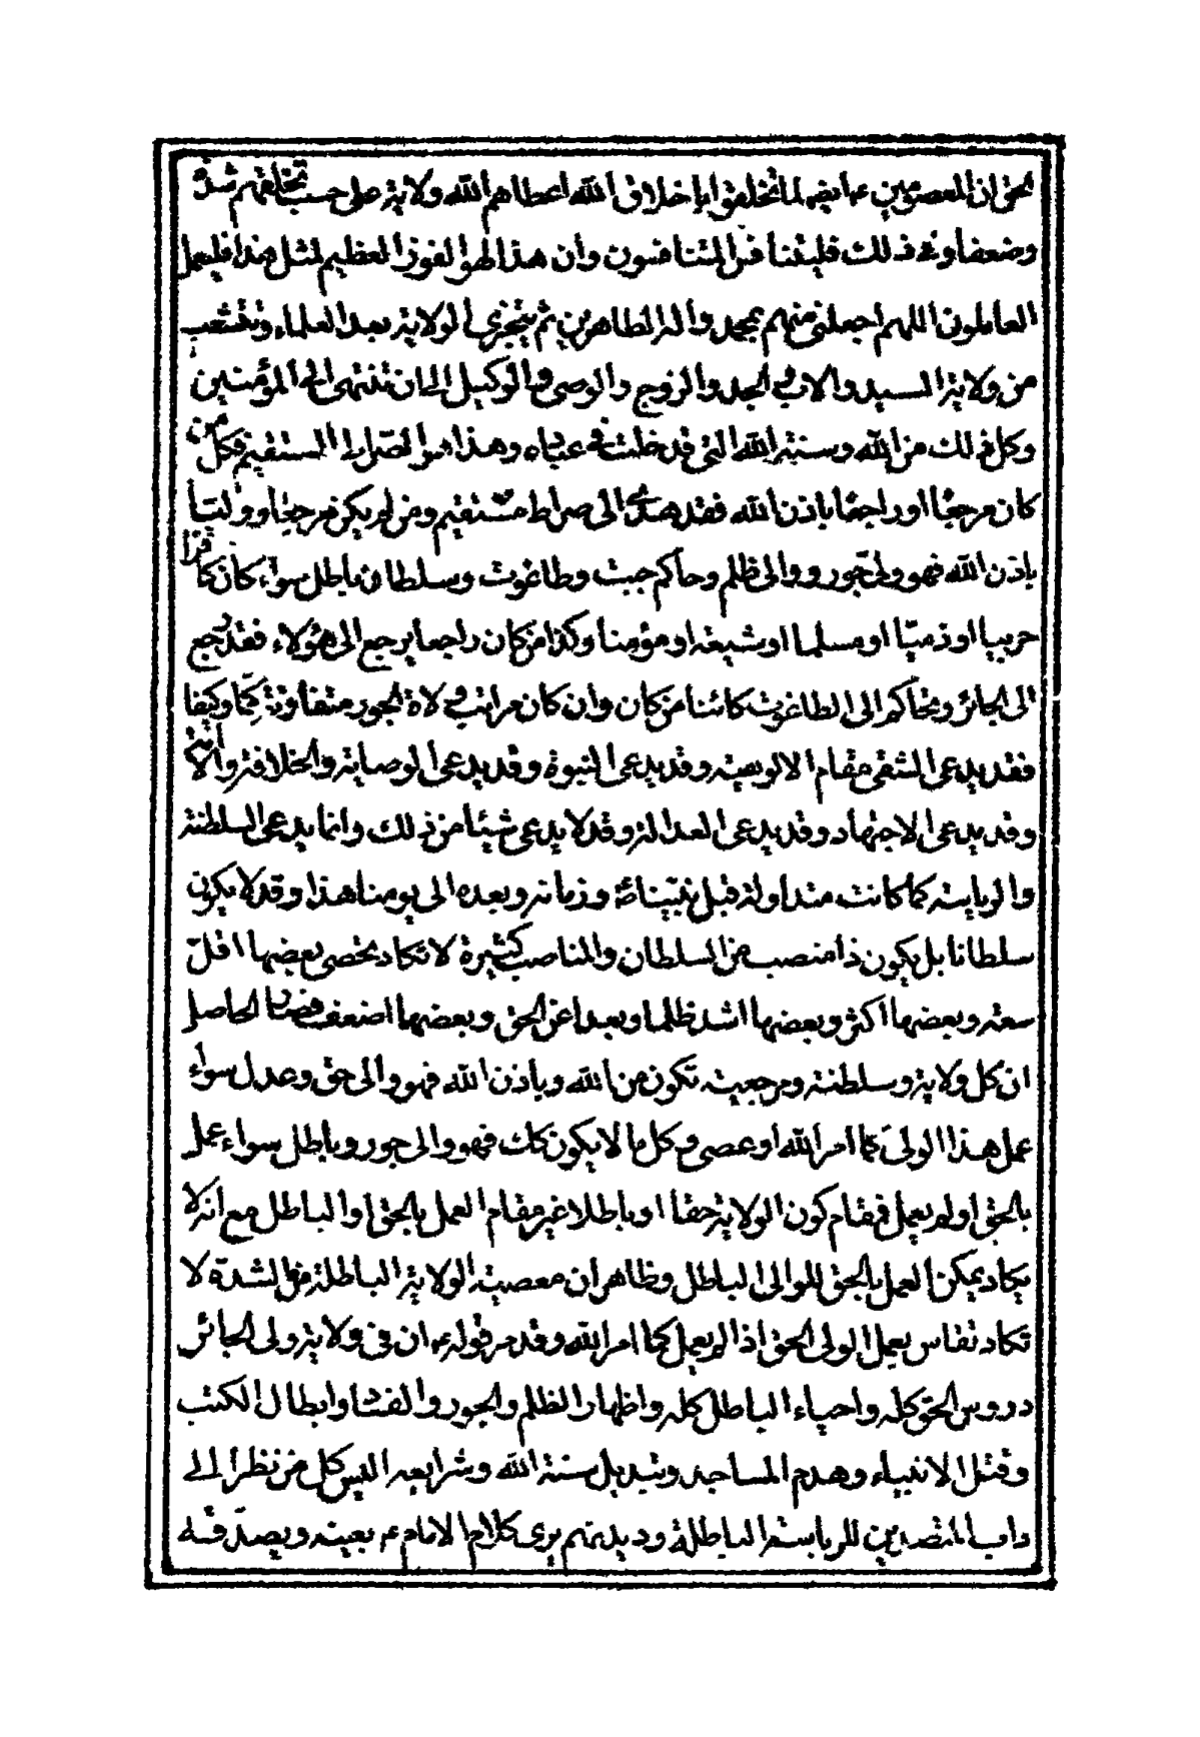 الحق ان المعصومين ع ايضا لما تخلقوا باخلاق الله اعطاهم الله ولاية على حسب تخلقهم شدة
وضعفا وفى ذلك فليتنافس المتنافسون وان هذا لهو الفوز العظيم لمثل هذا فليعمل
العاملون اللهم اجعلنى منهم بمحمد واله الطاهرين ثم ينجزى الولاية بعد العلماء وتنشعب
من ولاية السيد والاب والجد والزوج والوصى والوكيل الى ان تنتهى الى المؤمنين
وكل ذلك من الله وسنة الله التى قد خلت فى عباده وهذا هو الصراط المستقيم فكل من
كان مرجعا او راجعا باذن الله فقد هدى الى صراط مستقيم ومن لم يكن مرجعا ووليا
باذن الله فهو ولى جور ووالى ظلم وحاكم جبت وطاغوت وسلطان باطل سواء كان كافرا
حربيا او ذميا او مسلما او شيعة او مؤمنا وكذا من كان راجعا يرجع الى هؤلاء فقد رجع
الى الجائر وتحاكم الى الطاغوت كائنا من كان وان كان مراتب ولاة الجور متفاوتة كما وكيفا
فقد يدعى الشقى مقام الالوهية وقد يدعى النبوة وقد يدعى الوصاية والخلافة والامامة
وقد يدعى الاجتهاد وقد يدعى العدالة وقد لا يدعى شيئا من ذلك وانما يدعى السلطنة
والرياسة كما كانت متداولة قبل نبينا ص وزمانه وبعده الى يومنا هذا وقد لا يكون
سلطانا بل يكون ذا منصب من السلطان والمناصب كثيرة لا تكاد تحصى بعضها اقل
سعة وبعضها اكثر وبعضها اشد ظلما وبعدا عن الحق وبعضها اضعف الحاصل
ان كل ولاية وسلطنة ومرجعية تكون من الله وباذن الله فهو والى حق وعدل سواء
عمل هذا الولى كما امر الله او عصى وكل ما لا يكون كك فهو والى جور وباطل سواء عمل
بالحق او لم يعمل فمقام كون الولاية حقا او باطلا غير مقام العمل بالحق او الباطل مع انه لا
يكاد يمكن العمل بالحق للوالى الباطل وظاهر ان معصية الولاية الباطلة من الشدة لا
تكاد تقاس بعمل الولى الحق اذا لم يعمل كما امر الله وقد مر قوله ع ان فى ولاية ولى الجائر
دروس الحق كله واحياء الباطل كله واظهار الظلم والجور والفساد وابطال الكتب
وقتل الانبياء وهدم المساجد وتبديل سنة الله وشرايعه اليس كل من نظر الى
داب المتصدين للرياسة الباطلة وديدنهم يرى كلام الامام ع بعينه ويصدقه